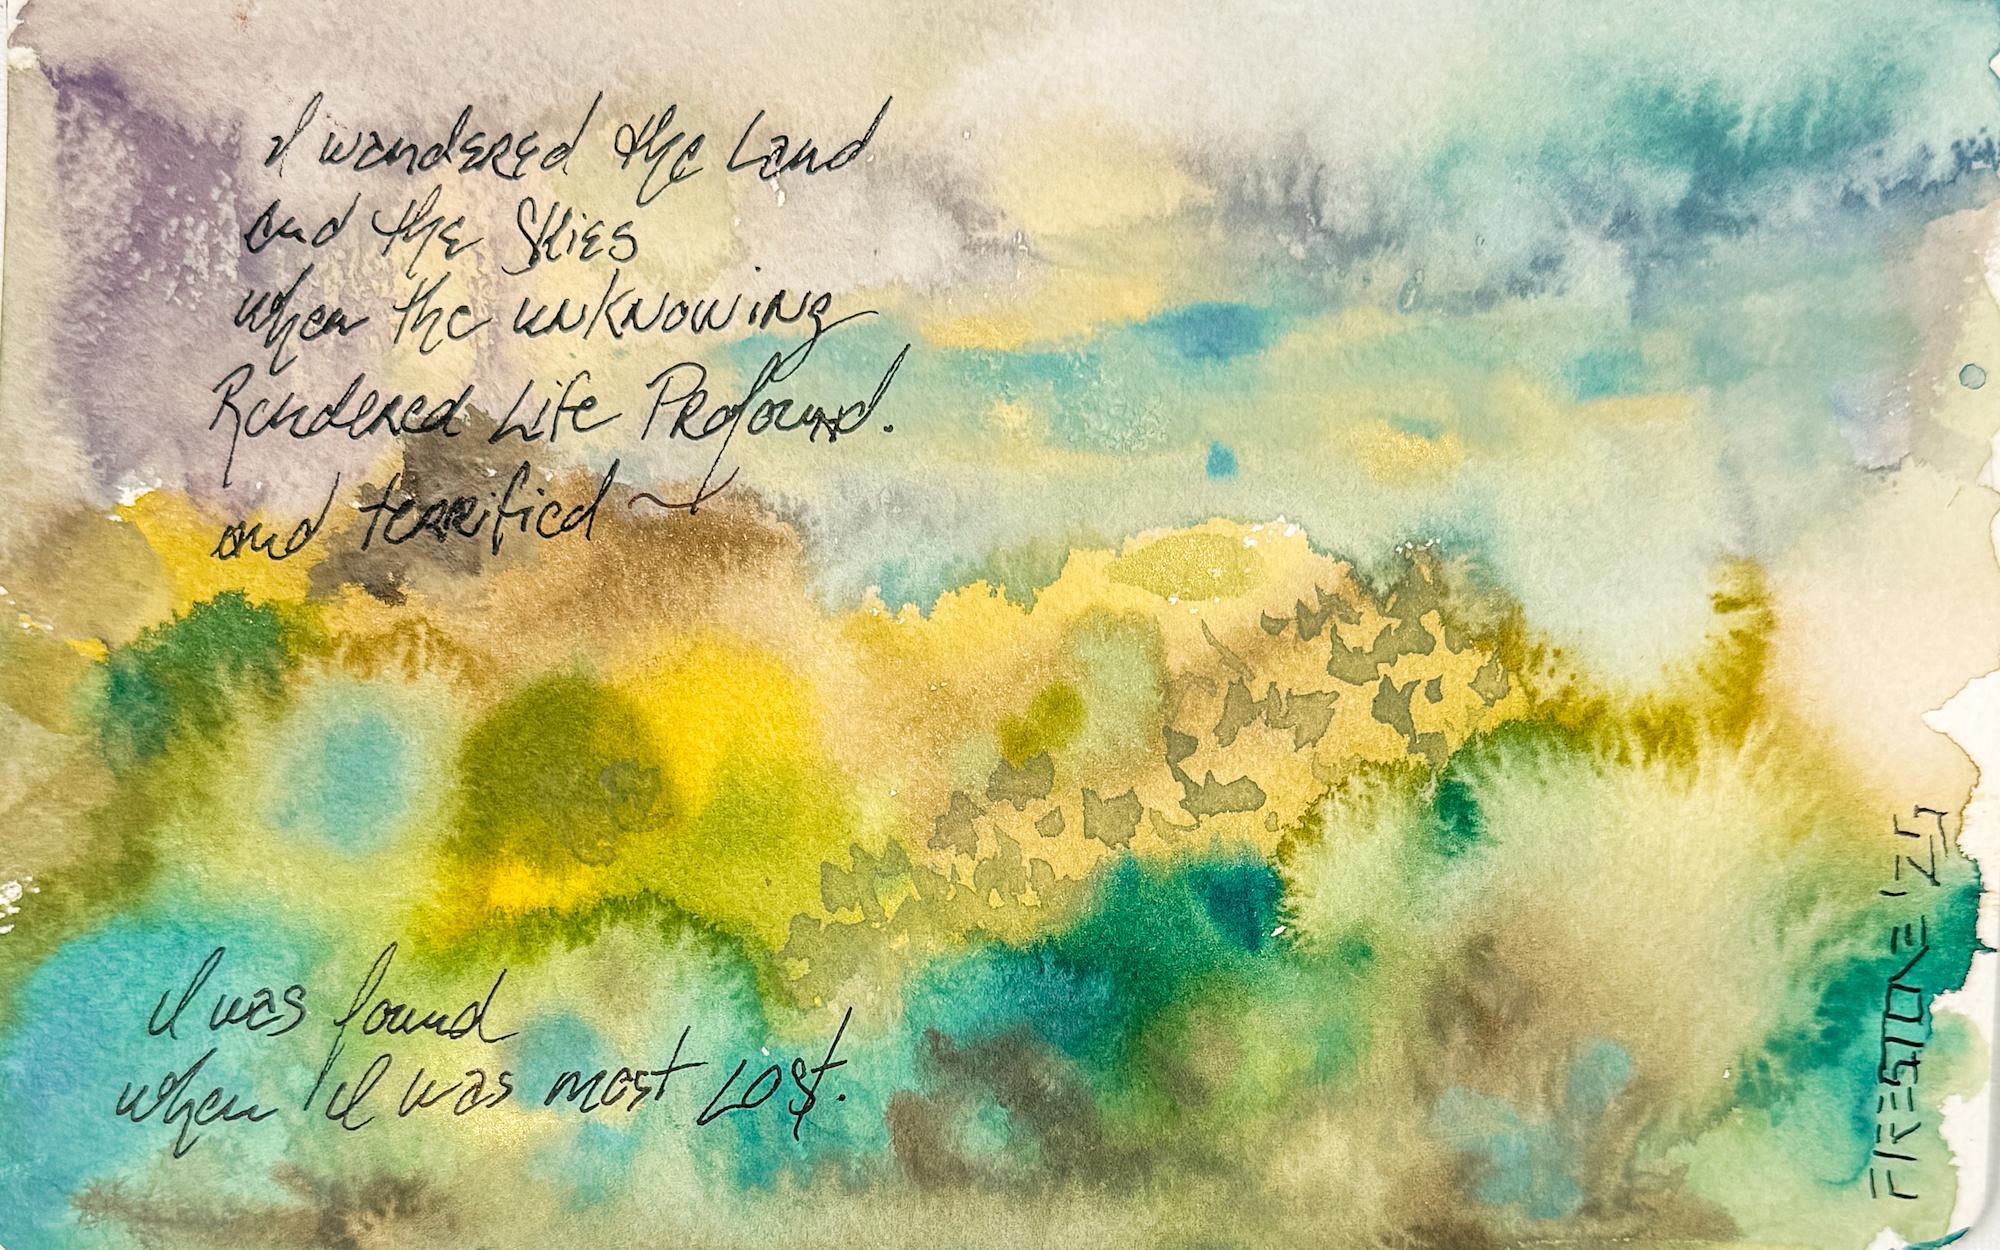 I wandered the Land
and the Skies
when the unknowing
Rendered Life Profound.
and terrified ~
I was found
when I was most Lost.
FIRESTONE '24